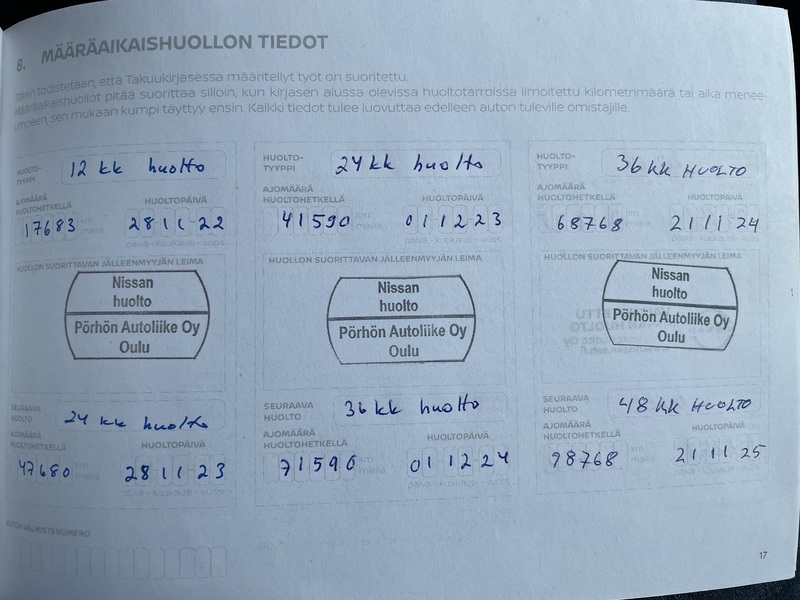 8. MÄÄRÄAIKAISHUOLLON TIEDOT
Täten todistetaan, että Takuukirjasessa määritellyt työt on suoritettu.
Määräaikaishuollot pitää suorittaa silloin, kun kirjasen alussa olevissa huoltotarroissa ilmoitettu kilometrimäärä tai aika menee
umpeen, sen mukaan kumpi täyttyy ensin. Kaikki tiedot tulee luovuttaa edelleen auton tuleville omistajille.
HUOLTO-
TYYPPI
12 kk huolto
AJOMÄÄRÄ
HUOLTOHETKELLÄ
HUOLTOPÄIVÄ
17683 km
mailia
28 11 22
päivä - kuukausi - vuosi
HUOLLON SUORITTAVAN JÄLLEENMYYJÄN LEIMA
Nissan
huolto
Pörhön Autoliike Oy
Oulu
SEURAAVA
HUOLTO
24 kk huolto
AJOMÄÄRÄ
HUOLTOHETKELLÄ
HUOLTOPÄIVÄ
47680 km
mailia
28 11 23
päivä - kuukausi - vuosi
AUTON VALMISTENUMERO
HUOLTO-
TYYPPI
24 kk huolto
AJOMÄÄRÄ
HUOLTOHETKELLÄ
HUOLTOPÄIVÄ
41590 km
mailia
01 12 23
päivä - kuukausi - vuosi
HUOLLON SUORITTAVAN JÄLLEENMYYJÄN LEIMA
Nissan
huolto
Pörhön Autoliike Oy
Oulu
SEURAAVA
HUOLTO
36 kk huolto
AJOMÄÄRÄ
HUOLTOHETKELLÄ
HUOLTOPÄIVÄ
71590 km
mailia
01 12 24
päivä - kuukausi - vuosi
HUOLTO-
TYYPPI
36 kk HUOLTO
AJOMÄÄRÄ
HUOLTOHETKELLÄ
HUOLTOPÄIVÄ
68768 km
mailia
21 11 24
päivä - kuukausi - vuosi
HUOLLON SUORITTAVAN JÄLLEENMYYJÄN LEIMA
Nissan
huolto
Pörhön Autoliike Oy
Oulu
SEURAAVA
HUOLTO
48 kk HUOLTO
AJOMÄÄRÄ
HUOLTOHETKELLÄ
HUOLTOPÄIVÄ
98768 km
mailia
21 11 25
päivä - kuukausi - vuosi
17